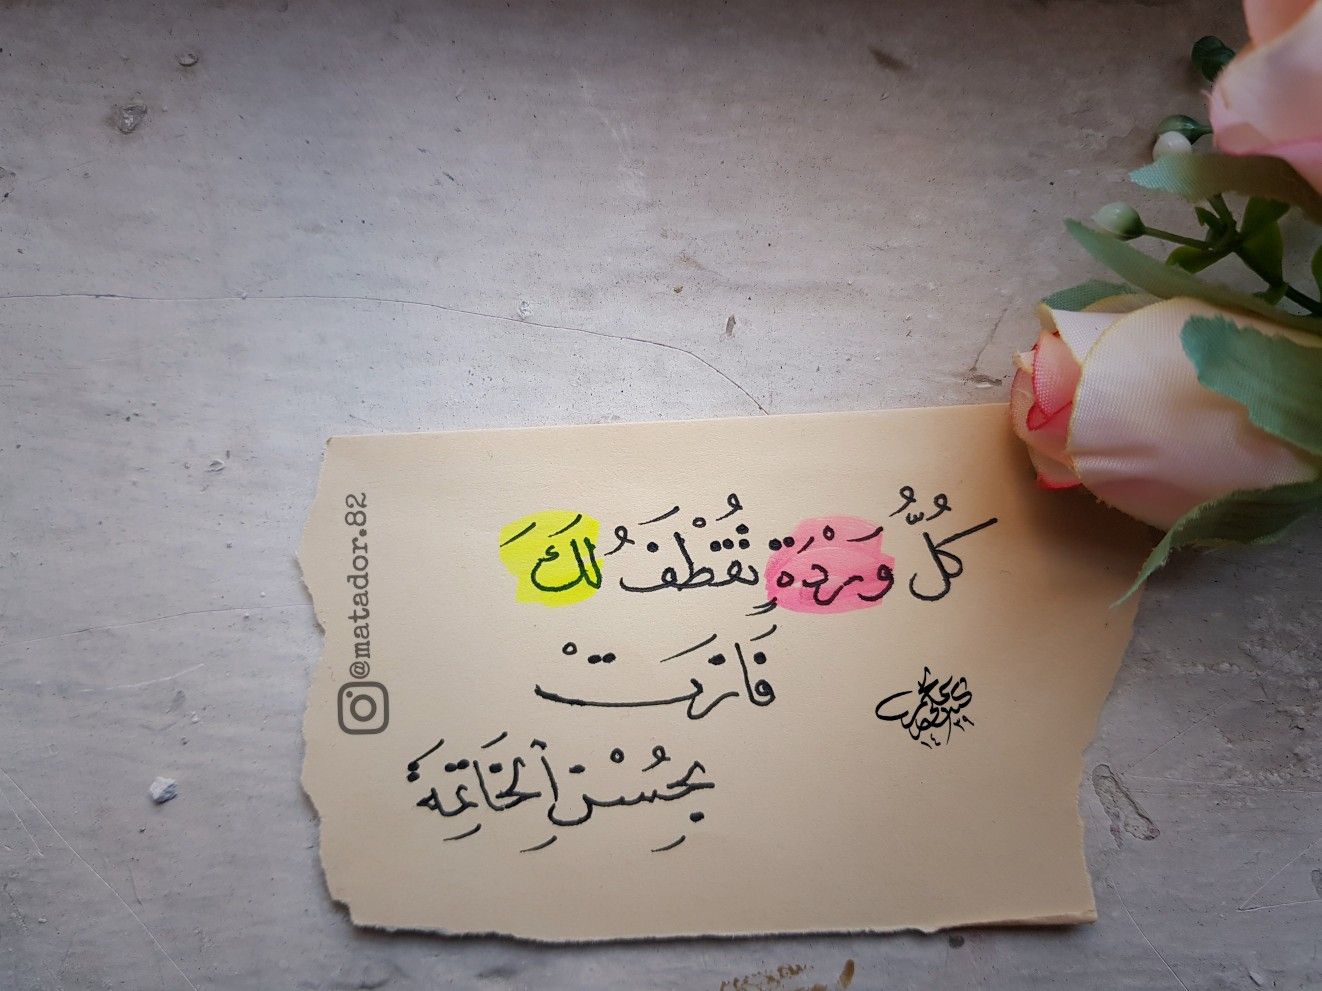 كُلُّ وَرْدَةٍ تُقْطَفُ لَكَ
فَازَتْ
بِحُسْنِ الْخَاتِمَةِ
@matador.82